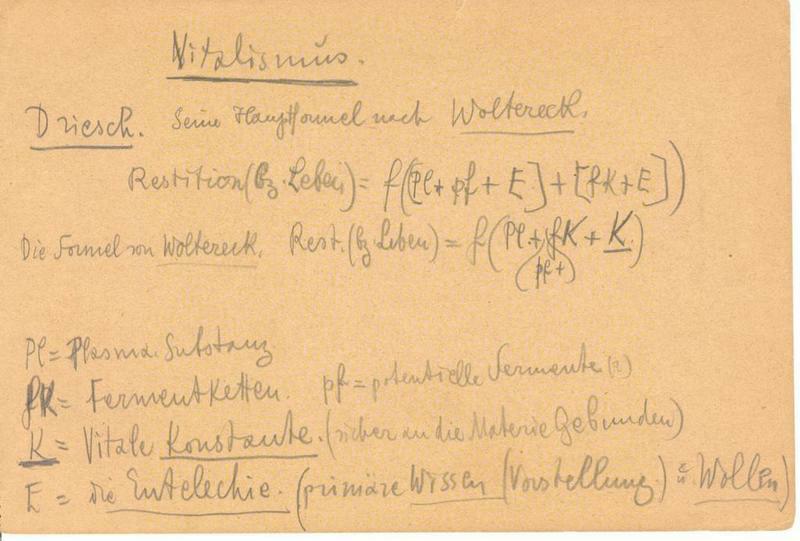 Vitalismus.
Driesch. Seine Hauptformel nach Woltereck.
Restition (bz. Leben) = f([Pl + pf + E] + [fK + E])
Die Formel von Woltereck. Rest. (bz Leben) = f(Pl + fK + K)
(pf +)
Pl = Plasma-Substanz
fK = Fermentketten. pf = potentielle Fermente (?)
K = Vitale Konstante. (sicher an die Materie gebunden)
E = die Entelechie. (primäre Wissen (Vorstellung) u Wollen)